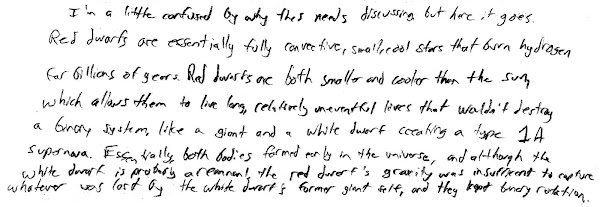 I'm a little confused by why this needs discussing but here it goes.
Red dwarfs are essentially fully convective, small, cool stars that burn hydrogen
for billions of years. Red dwarfs are both smaller and cooler than the sun,
which allows them to live long, relatively uneventful lives that wouldn't destroy
a binary system, like a giant and a white dwarf creating a type 1A
supernova. Essentially, both bodies formed early in the universe, and although the
white dwarf is probably a remnant, the red dwarf's gravity was insufficient to capture
whatever was lost by the white dwarf's former giant self, and they kept binary rotation.